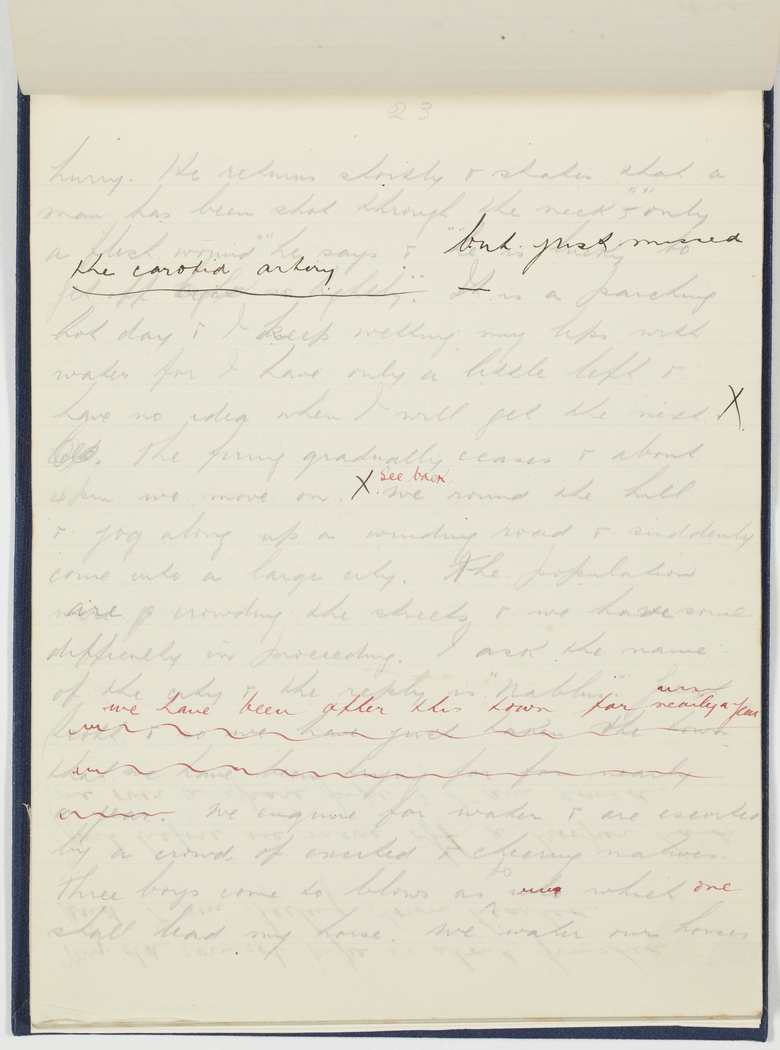 23
hurry. He returns shortly & states that a
man has been shot through the neck - "only
a flesh wound" he says & "he is lucky to
but just missed
the carotid artery
get off so lightly". It is a parching
hot day & I keep wetting my lips with
water for I have only a little left &
have no idea when I will get the next. X
The firing gradually ceases & about
4 pm we move on. X See back We round the hill
& jog along up a winding road & suddenly
come into a large city. The population
are crowding the streets & we have some
difficulty in proceeding. I ask the name
of the city & the reply is "Nablus".
we have been after this town for nearly a year
& so we have just taken the town
that we have been trying for for nearly
a year. We enquire for water & are escorted
by a crowd of excited & cheering natives.
Three boys come to blows as to which one
shall lead my horse. We water our horses